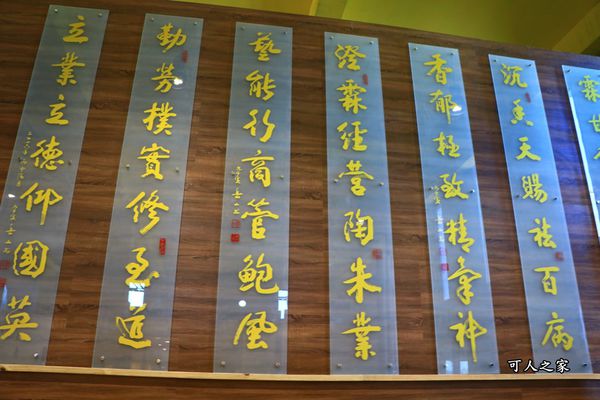 霖
沉香天賜祛百病
香郁極致精氣神
澄霖經營陶朱業
藝能行商管鮑風
勤勞樸實修至道
立業立德仰國英
可人之家